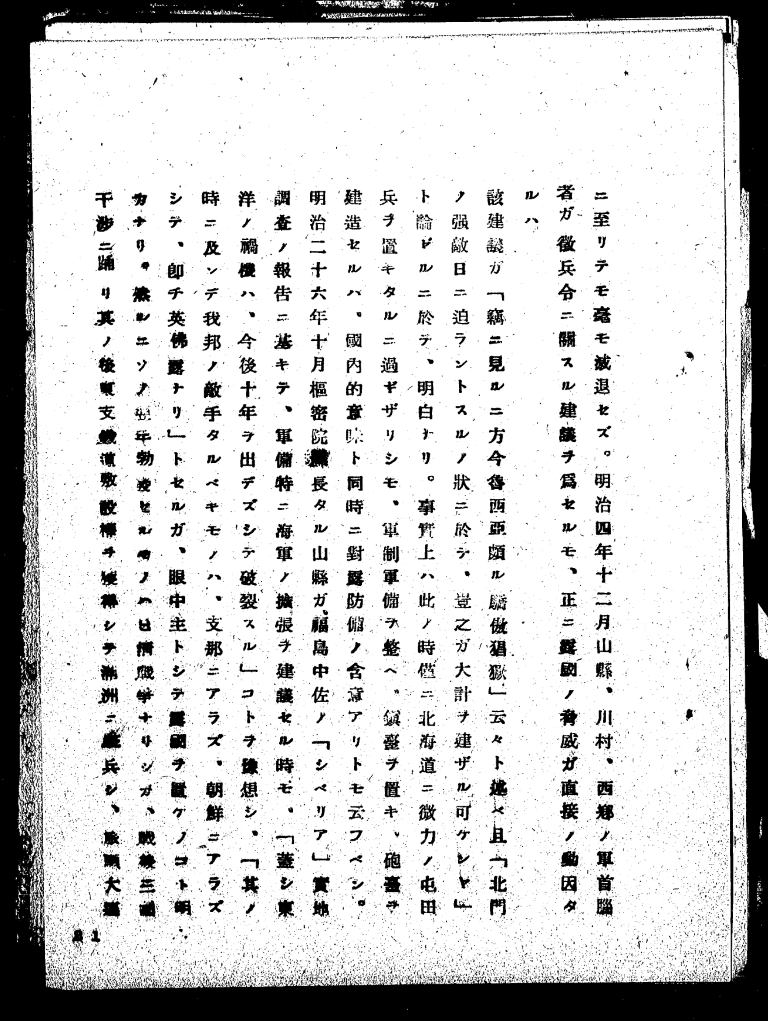 ニ至リテモ毫モ減退セズ。明治四年十二月山縣、川村、西鄕ノ軍首腦
者ガ徵兵令ニ關スル建議ヲ爲セルモ、正ニ露國ノ脅威ガ直接ノ動因タ
ルハ、
該建議ガ「竊ニ見ルニ方今魯西亞頗ル驕傲猖獗」云々ト述べ且「北門
ノ强敵日ニ迫ラントスルノ狀ニ於テ、豈之ガ大計ヲ建ザル可ケンヤ」
ト論ビルニ於テ、明白ナリ。事實上ハ此ノ時僅ニ北海道ニ微力ノ屯田
兵ヲ置キタルニ過ギザリシモ、軍制軍備ヲ整ヘ、鎭臺ヲ置キ、砲臺ヲ
建造セルハ、國內的意味ト同時ニ對露防備ノ含意アリトモ云フベシ。
明治二十六年十月樞密院議長タル山縣ガ、福島中佐ノ「シベリア」實地
調査ノ報告ニ基キテ、軍備特ニ海軍ノ擴張ヲ建議セル時モ、「蓋シ東
洋ノ禍機ハ、今後十年ヲ出デズシテ破裂スル」コトヲ豫想シ、「其ノ
時ニ及ンデ我邦ノ敵手タルベキモノハ、支那ニアラズ、朝鮮ニアラズ
シテ、卽チ英佛露ナリ」トセルガ、眼中主トシテ露國ヲ置ケノコト明
カナリ。然ルニソノ翌年勃發セルモノハ日淸戰爭ナリシガ、戰後三國
干涉ニ踊リ其ノ後東支鐵道敷設權ヲ獲得シテ滿洲ニ駐兵シ、旅順大連
21